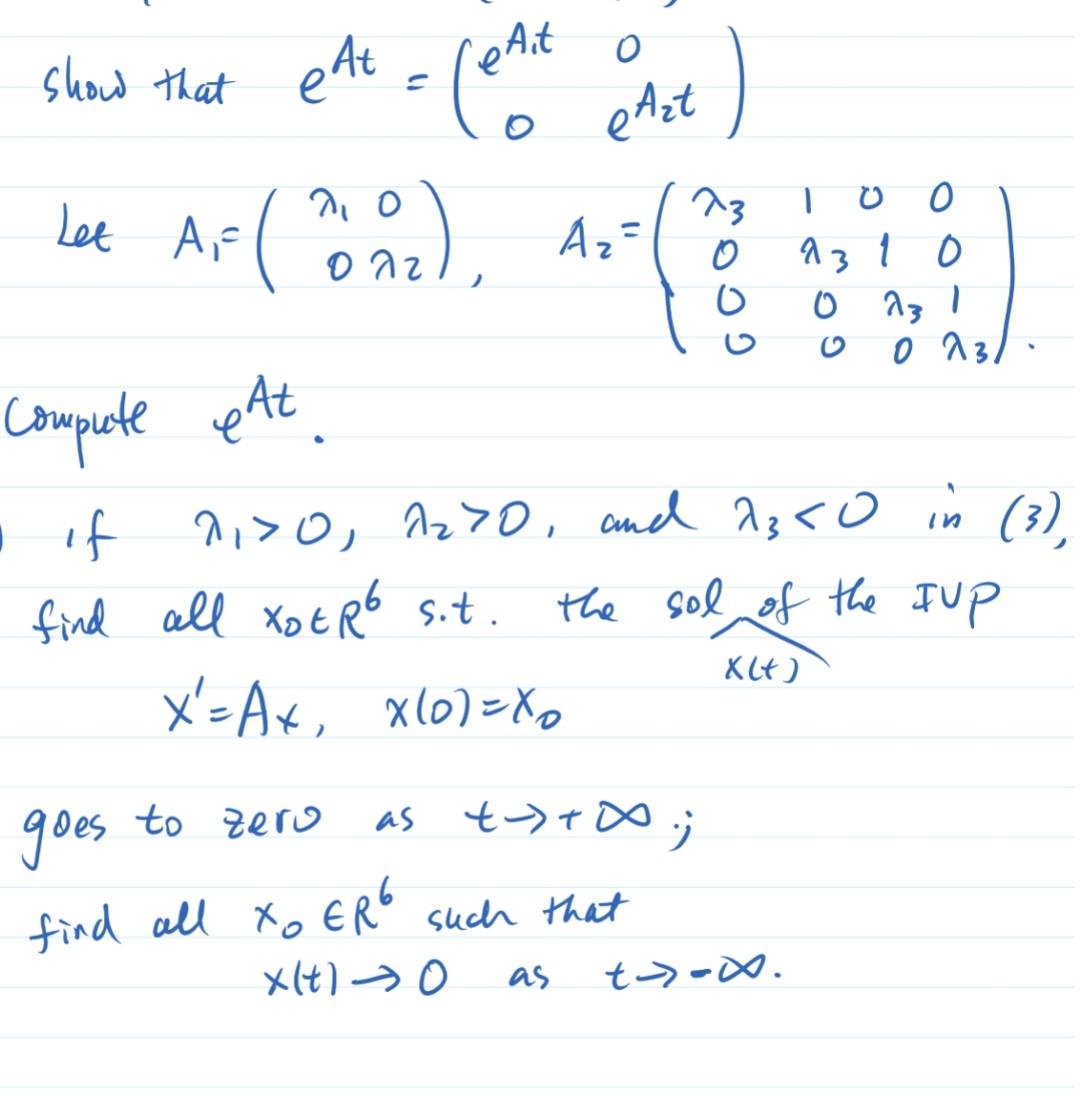 show that e^{At} = ( e^{A₁t} 0
0 e^{A₂t} )
Let A₁ = ( λ₁ 0
0 λ₂ ), A₂ = ( λ₃ 1 0 0
0 λ₃ 1 0
0 0 λ₃ 1
0 0 0 λ₃ ).
Compute e^{At}.
) if λ₁>0, λ₂>0, and λ₃<0 in (3),
find all x₀∈R⁶ s.t. the sol of the IVP
x(t)
x'=Ax, x(0)=x₀
goes to zero as t→+∞.;
find all x₀ ∈R⁶ such that
x(t)→0 as t→-∞.